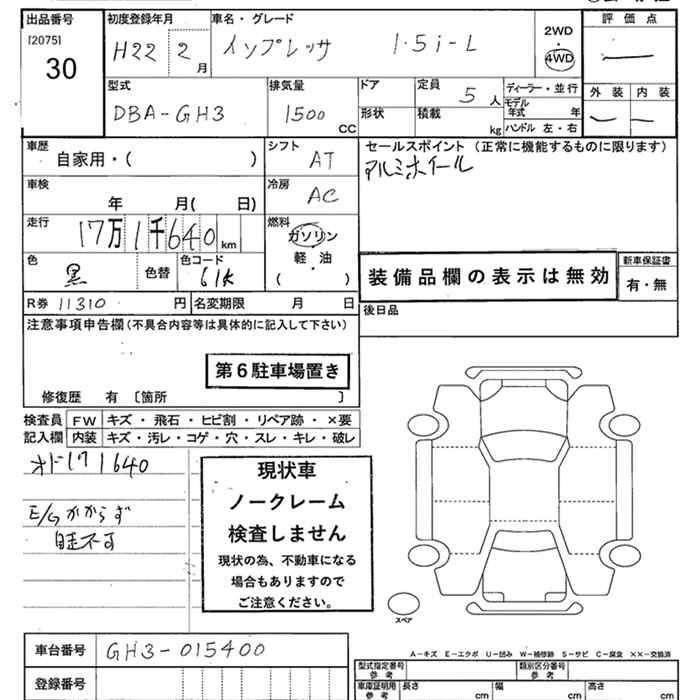 出品番号 初度登録年月 車名・グレード 2WD 評価点
[2075] H22 2月 インプレッサ 1.5i-L 4WD
30
型式 排気量 ドア 定員 5人 ディーラー・並行 外装 内装
DBA-GH3 1500CC 形状 積載 kg モデル年式 年
ハンドル 左・右
車歴 シフト セールスポイント (正常に機能するものに限ります)
自家用・( ) AT アルミホイール
車検 冷房
年 月( 日) AC
走行 燃料
17万1千640km ガソリン
軽・油
( )
色 色コード 新車保証書
黒 色替 61K 装備品欄の表示は無効 有・無
R券 11310円 名変期限 月 日 後日品
注意事項申告欄(不具合内容等は具体的に記入して下さい)
第6駐車場置き
修復歴 有 〔箇所 〕
検査員 FW キズ・飛石・ヒビ割・リペア跡・×要
記入欄 内装 キズ・汚レ・コゲ・穴・スレ・キレ・破レ
オド171640
現状車
ノークレーム
E/Gかからず
検査しません
自走不可
現状の為、不動車になる
場合もありますので
ご注意ください。
スペア
A-キズ E-エクボ U-凹み W-補修跡 S-サビ C-腐食 ××-交換済
車台番号 GH3-015400
型式指定番号 参考 類別区分番号 参考
登録番号
車庫証明用 参考 長さ cm 幅 cm 高さ cm